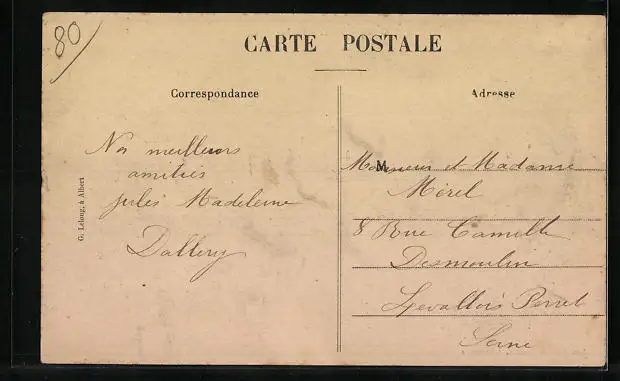 80
CARTE POSTALE
Correspondance
Adresse
Nos meilleurs
amitiés
Jules Madeleine
Dallery
G. Lelong, à Albert
M
Monsieur et Madame
Morel
8 Rue Camille
Desmoulin
Levallois Perret
Seine